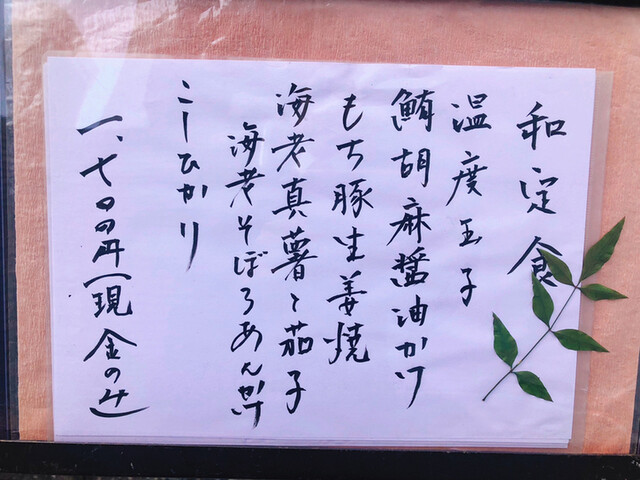 和定食
温度玉子
鮪胡麻醤油かけ
もち豚生姜焼
海老真薯と茄子
海老そぼろあんかけ
こしひかり
一、七〇〇円(現金のみ)